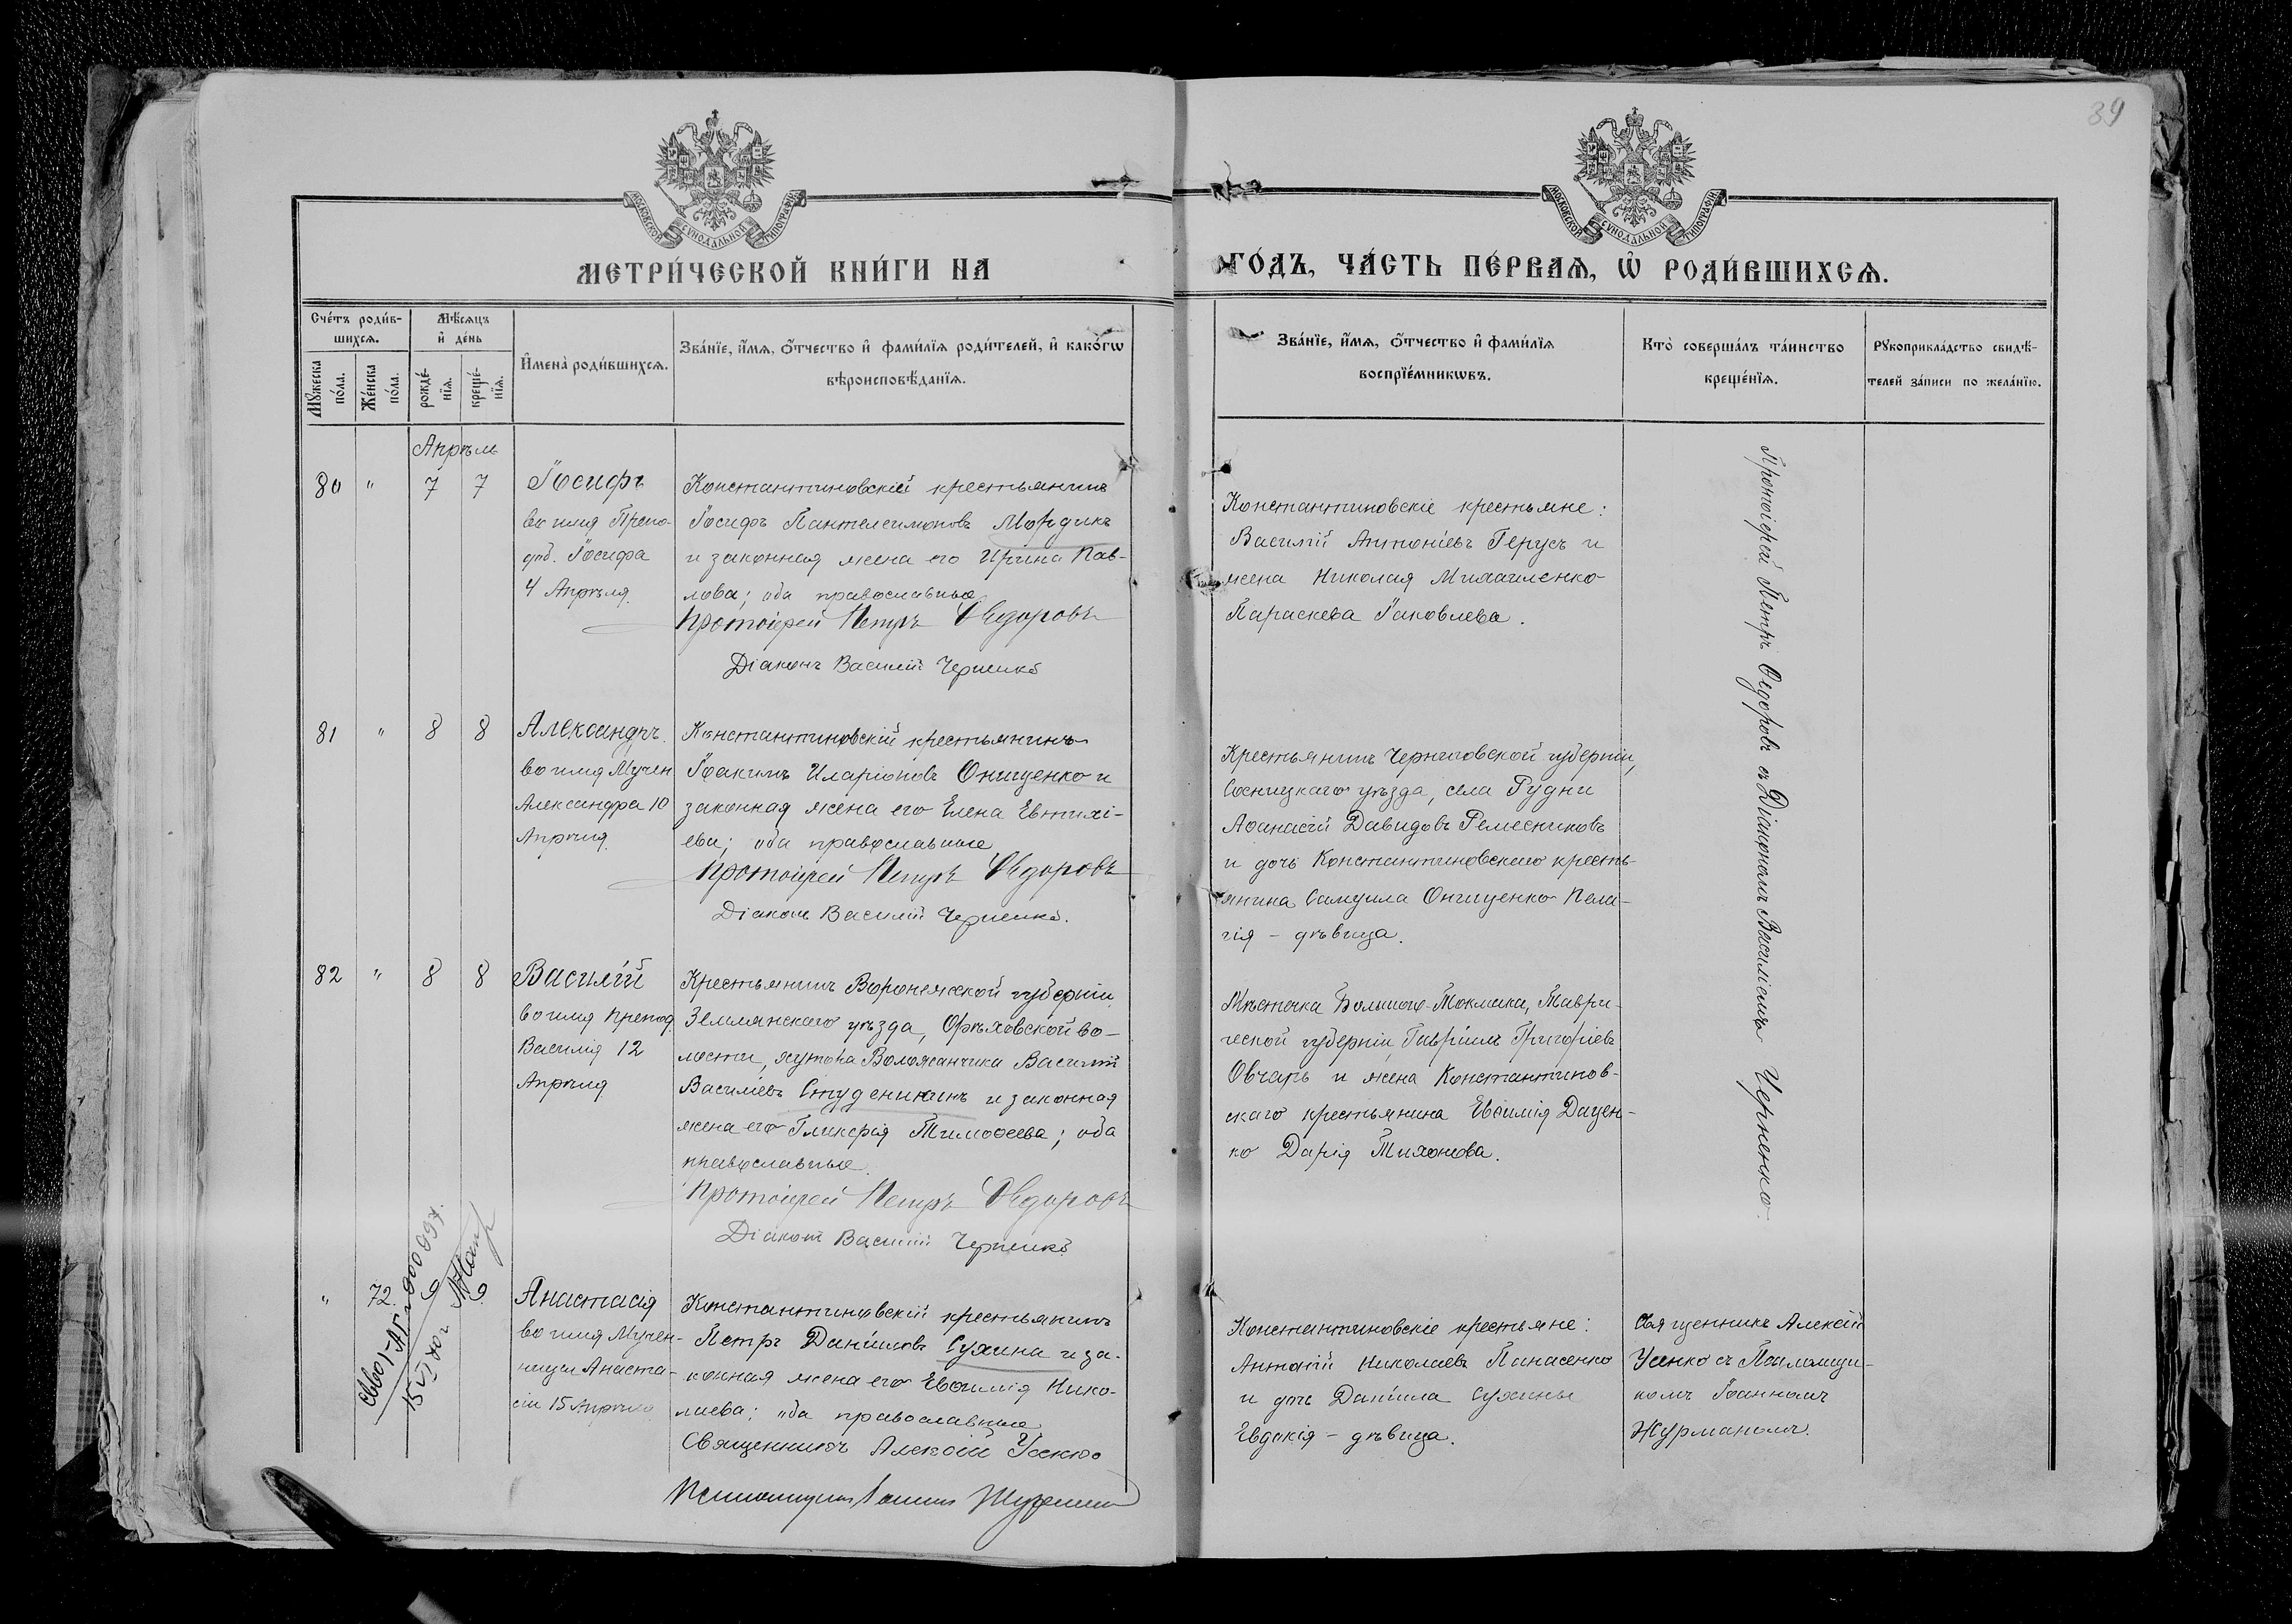 39
МОСКОВСКОЙ СѴНОДАЛЬНОЙ ТИПОГРАФІИ
МОСКОВСКОЙ СѴНОДАЛЬНОЙ ТИПОГРАФІИ
МЕТРИ́ЧЕСКОЙ КНИ́ГИ НА
ГО́ДЪ, ЧА́СТЬ ПЕ́РВАѦ, Ѽ РОДИ́ВШИХСѦ.
Сче́тъ роди́в-
шихсѧ.
Мꙋжеска по́ла.
Же́нска по́ла.
Мѣ́сѧцъ
и҆ де́нь
рожде́-
нїѧ.
креще́-
нїѧ.
И҆мена̀ роди́вшихсѧ.
Зва́нїе, и҆́мѧ, ѻ҆́тчество и҆ фами́лїѧ роди́телей, и҆ како́гѡ
вѣроисповѣ́данїѧ.
Зва́нїе, и҆́мѧ, ѻ҆́тчество и҆ фами́лїѧ
воспрїе́мникѡвъ.
Кто̀ соверша́лъ та́инство
креще́нїѧ.
Рꙋкоприкла́дство свидѣ́-
телей за́писи по жела́нїю.
Апрѣль
80 " 7 7
Іосифъ
во имя Препо-
дб. Іосифа
4 Апрѣля.
Константиновскій крестьянинъ
Іосифъ Пантелеимоновъ Мордикъ
и законная жена его Ирина Пав-
лова; оба православные
Протоіерей Петръ Ѳедоровъ
Діаконъ Василій Черненко
Константиновскіе крестьяне:
Василій Антоніевъ Герусъ и
жена Николая Михайленко
Параскева Іаковлева.
Протоіерей Петръ Ѳедоровъ съ Діакономъ Василіемъ Черненко.
81 " 8 8
Александръ
во имя Мучен
Александра 10
Апрѣля.
Константиновскій крестьянинъ
Іоакимъ Иларіоновъ Онищенко и
законная жена его Елена Евтихі-
ева; оба православные
Протоіерей Петръ Ѳедоровъ
Діаконъ Василій Черненко.
Крестьянинъ Черниговской губерніи,
Сосницкаго уѣзда, села Рудни
Аѳанасій Давидовъ Ремесниковъ
и дочь Константиновскаго кресть-
янина Самуила Онищенко Пела-
гія – дѣвица.
82 " 8 8
Василій
во имя Препод.
Василія 12
Апрѣля
Крестьянинъ Воронежской губерніи
Землянскаго уѣзда, Орѣховской во-
лости, хутора Воложанчика Василій
Василіевъ Студеникинъ и законная
жена его Гликерія Тимоѳеева; оба
православные.
Протоіерей Петръ Ѳедоровъ
Діаконъ Василій Черненко
Мѣстечка Большого-Токмака, Таври-
ческой губерніи, Гавріилъ Григоріевъ
Овчаръ и жена Константинов-
скаго крестьянина Евѳимія Дацен-
ко Дарія Тихонова.
" 72. 9 9.
15 VI 70 г
Анастасія
во имя Мучен-
ницы Анаста-
сіи 15 Апрѣля
Константиновскій крестьянинъ
Петръ Даніиловъ Сухина и за-
конная жена его Евѳимія Нико-
лаева; оба православные
Священникъ Алексій Усенко
Псаломщикъ Іоаннъ Журманъ
Константиновскіе крестьяне:
Антоній Николаевъ Панасенко
и дочь Даніила Сухины
Евдокія – дѣвица.
Священникъ Алексій
Усенко съ Псаломщи-
комъ Іоанномъ
Журманомъ.